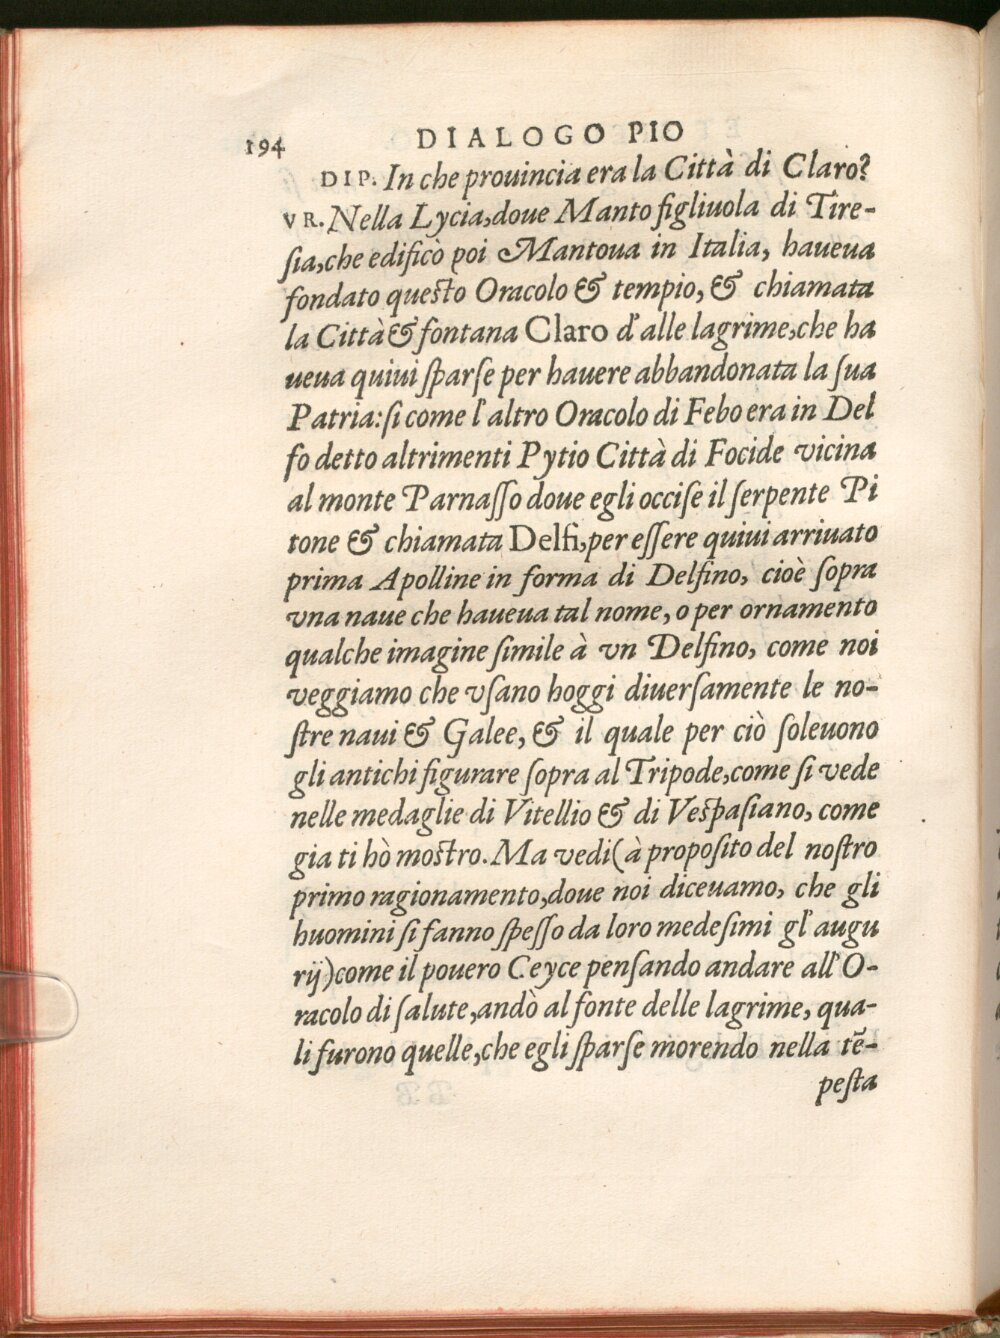 194
DIALOGO PIO
DIP. In che prouincia era la Città di Claro?
VR. Nella Lycia, doue Manto figliuola di Tire-
sia, che edificò poi Mantoua in Italia, haueua
fondato questo Oracolo & tempio, & chiamata
la Città & fontana Claro d'alle lagrime, che ha
ueua quiui sparse per hauere abbandonata la sua
Patria: si come l'altro Oracolo di Febo era in Del
fo detto altrimenti Pytio Città di Focide vicina
al monte Parnasso doue egli occise il serpente Pi
tone & chiamata Delfi, per essere quiui arriuato
prima Apolline in forma di Delfino, cioè sopra
vna naue che haueua tal nome, o per ornamento
qualche imagine simile à vn Delfino, come noi
veggiamo che vsano hoggi diuersamente le no-
stre naui & Galee, & il quale per ciò soleuono
gli antichi figurare sopra al Tripode, come si vede
nelle medaglie di Vitellio & di Vespasiano, come
gia ti hò mostro. Ma vedi (à proposito del nostro
primo ragionamento, doue noi diceuamo, che gli
huomini si fanno spesso da loro medesimi gl'augu
rij) come il pouero Ceyce pensando andare all'O-
racolo di salute, andò al fonte delle lagrime, qua-
li furono quelle, che egli sparse morendo nella tē-
pesta